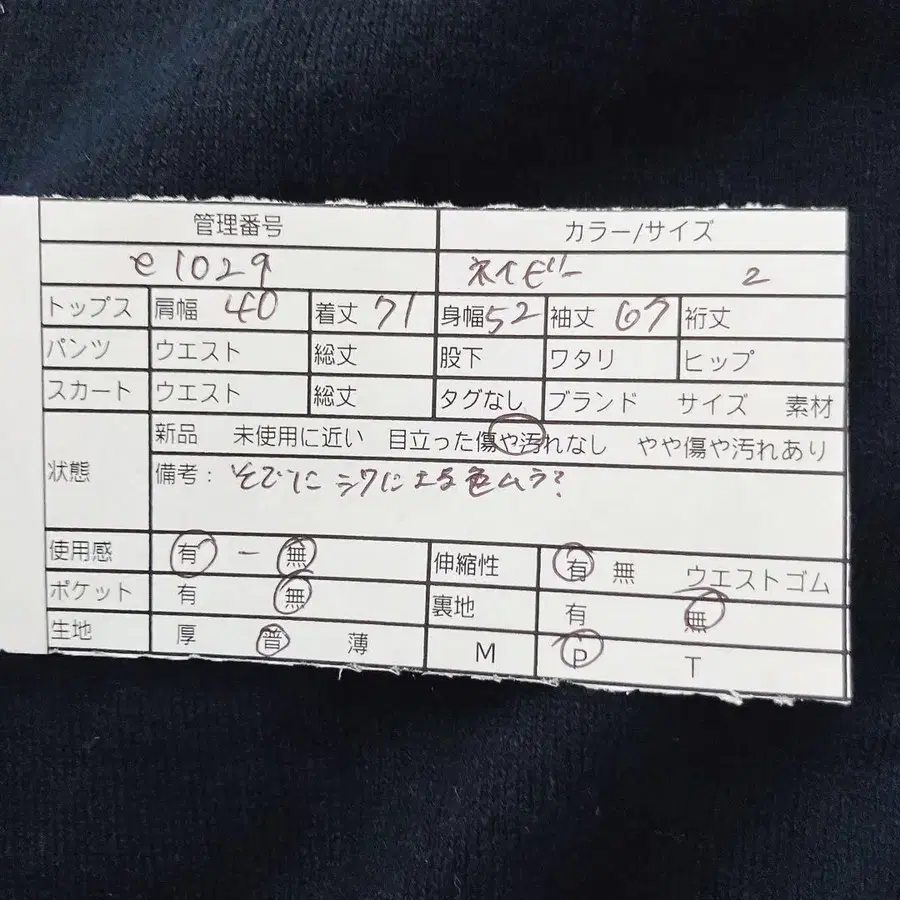 管理番号 カラー/サイズ
e1029 ネイビー 2
トップス 肩幅 40 着丈 71 身幅 52 袖丈 67 裄丈
パンツ ウエスト 総丈 股下 ワタリ ヒップ
スカート ウエスト 総丈 タグなし ブランド サイズ 素材
状態 新品 未使用に近い 目立った傷や汚れなし やや傷や汚れあり
備考: そでにシワによる色ムラ?
使用感 有 ー 無 伸縮性 有 無 ウエストゴム
ポケット 有 無 裏地 有 無
生地 厚 普 薄 M P T